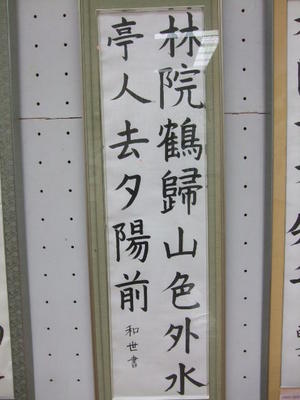 林院鶴歸山色外水
亭人去夕陽前
和世書